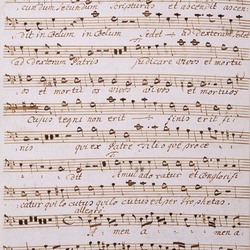 cundum secundum Scripturas et ascendit ascen
dit in Cœlum in Cœlum sedet ad dexteram
ad dexteram Patris judicare vivos et mortu
os et mortu os vivos vivos et mortuos
Cujus regni non erit finis erit fi
nis qui ex Patre
simul ado ratur et
catur qui lo cutus qui lo cutus est per Prophetas.
allegro
Amen a men a